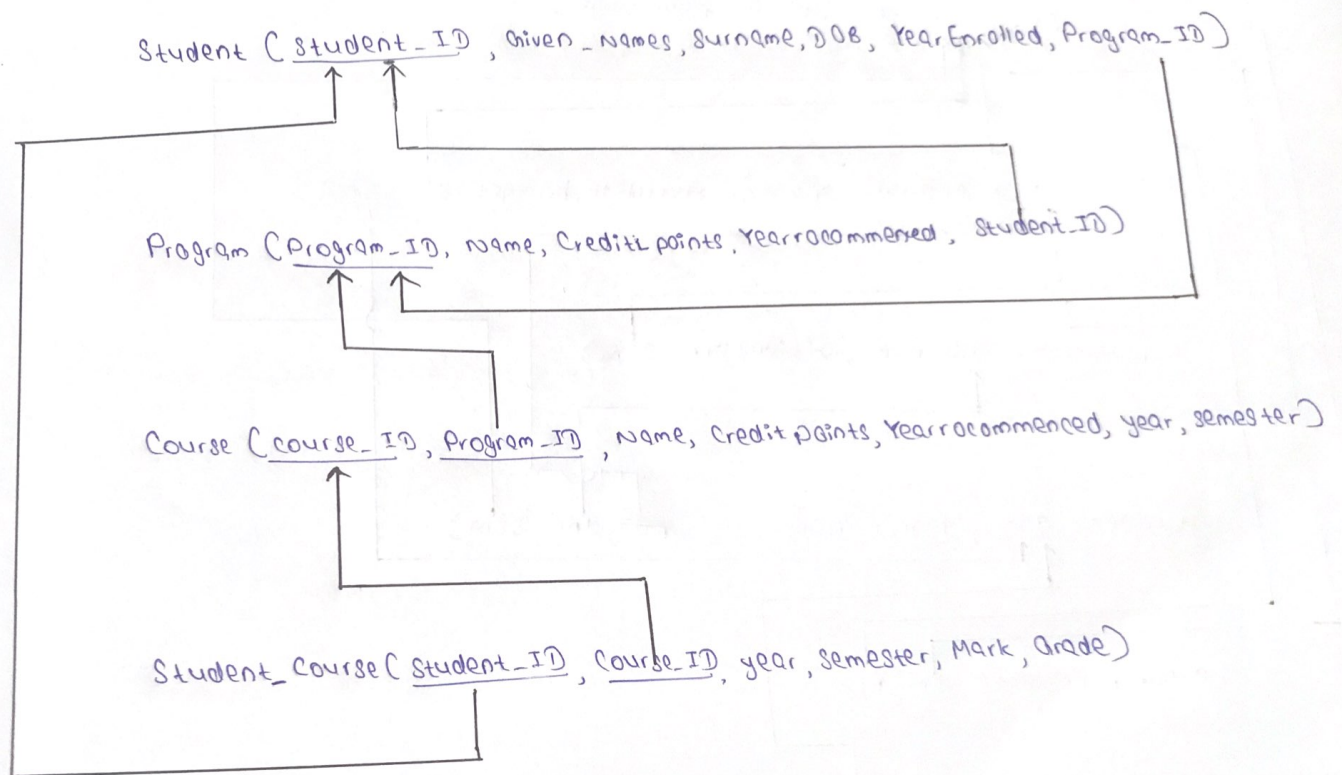 Student (Student_ID, Given_Names, Surname, DOB, YearEnrolled, Program_ID)
Program (Program_ID, Name, Creditt points, Yearrocommened, Student_ID)
Course (Course_ID, Program_ID, Name, Credit points, Yearrocommenced, year, semester)
Student_Course (Student_ID, Course_ID, year, semester, Mark, Grade)